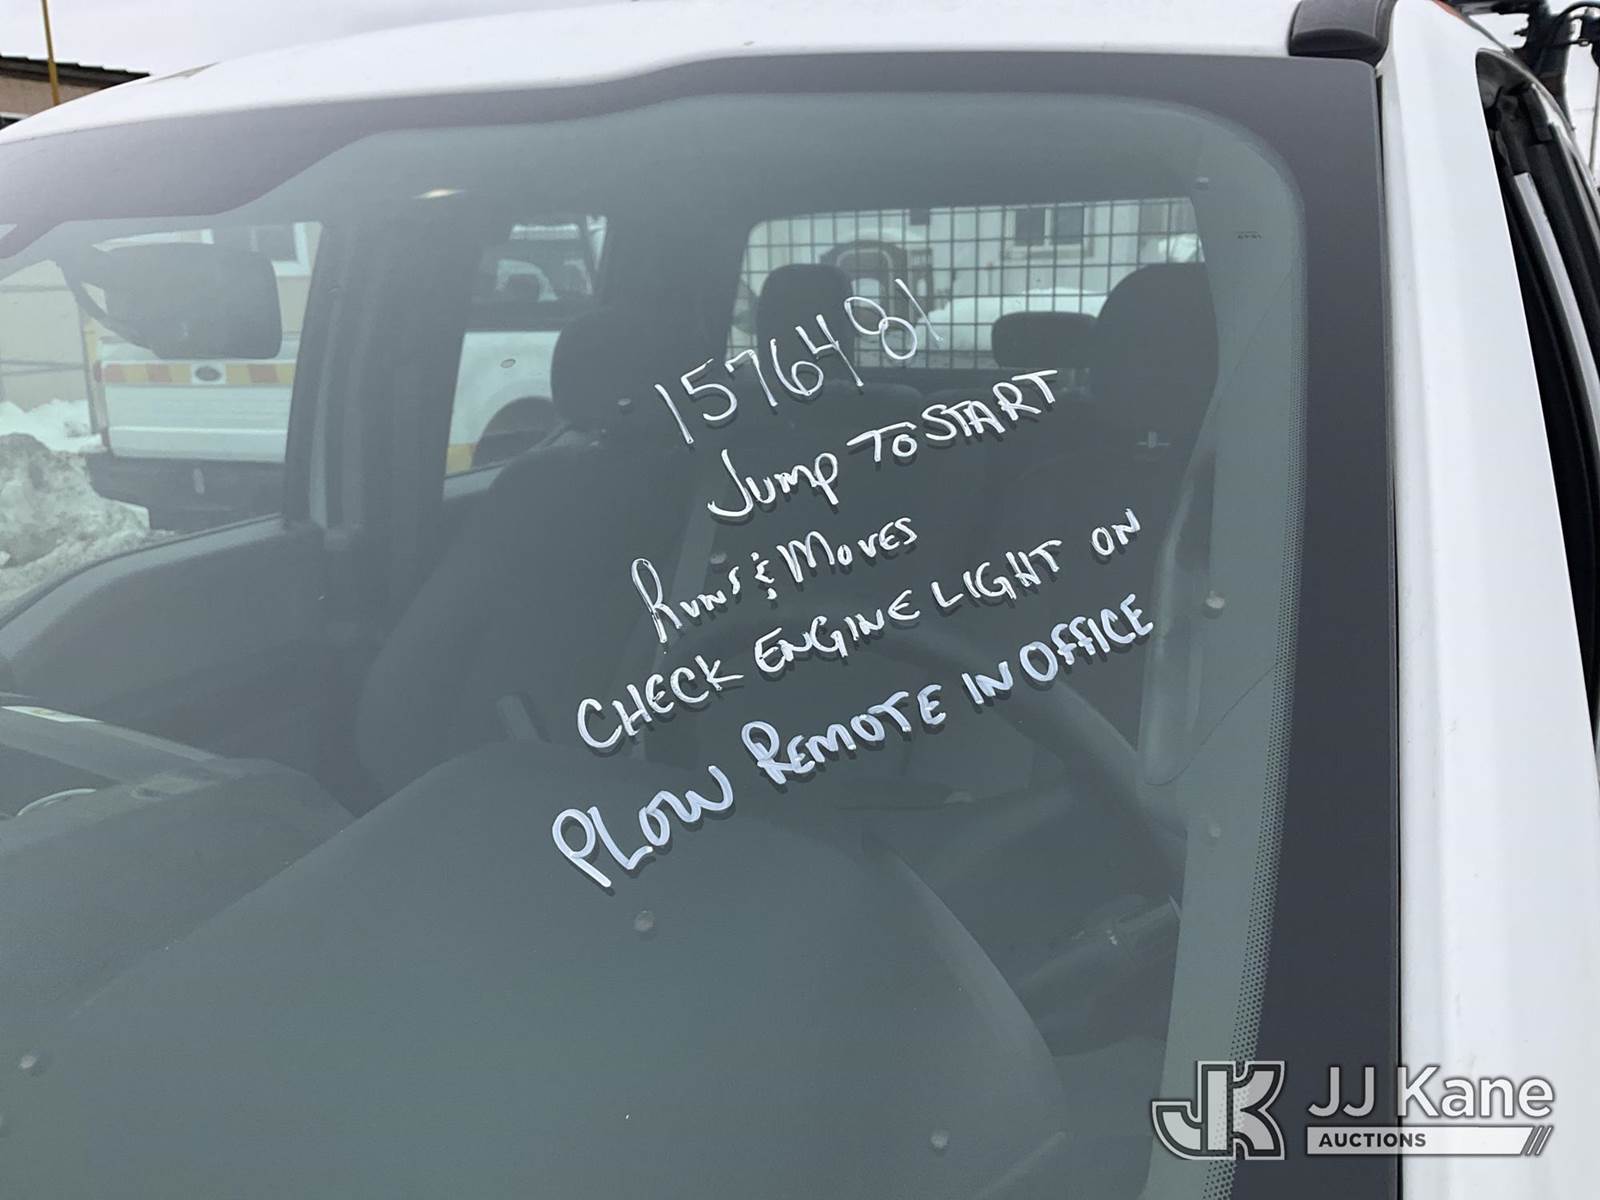 1576481
Jump To START
Runs & Moves
CHECK ENGINE LIGHT ON
PLOW REMOTE IN OFFICE
JK JJ Kane
AUCTIONS